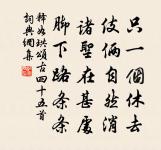 只一個休去
伎倆自然消
諸聖在甚處
脚下路條條
釋如珙頌古四十五首
詞典網集